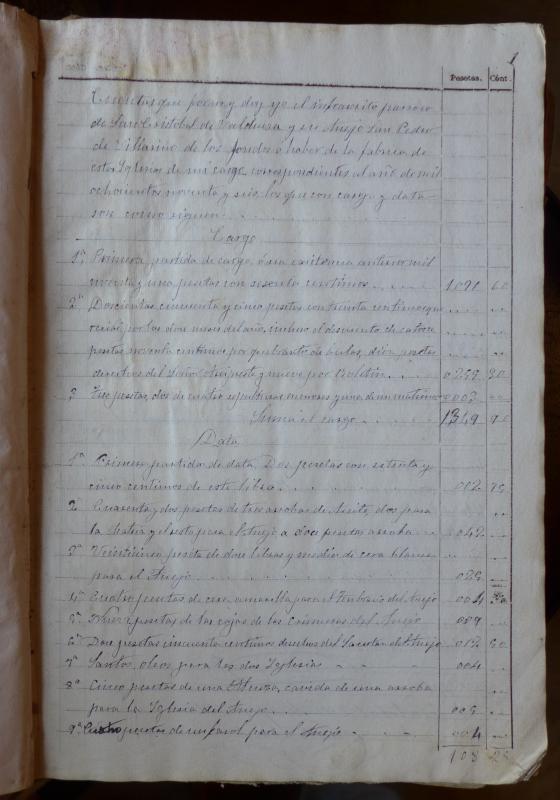 1
Pesetas. Cént.
Cuentas que formo y doy yo el infrascrito párroco
de San Cristobal de Valdueza y su Anejo San Pedro
de Villarino de los fondos o haber de la fabrica de
estas Iglesias de mi cargo correspondientes al año de mil
ochocientos noventa y seis, los que con cargo y data
son como siguen
Cargo
1ª Primera partida de cargo, ó sea existencia anterior mil
noventa y una pesetas con sesenta centimos 1091 60
2ª Doscientas cincuenta y cinco pesetas con treinta centimos que
por los doce meses del año, incluso el descuento de catorce
pesetas noventa centimos por quebranto de bulas, diez pesetas
derechos del Señor Arcipreste y nueve por Boletin 0255 30
3 Tres pesetas, dos de cuatro sepulturas menores y una de un 0003
Suma el cargo 1349 90
Data
1ª Primera partida de data Dos pesetas con setenta y
cinco centimos de este libro 002 75
2ª Cuarenta y dos pesetas de tres arrobas de Aceite, dos para
la Matriz y el resto para el Anejo a doce pesetas arroba 042
3ª Veinticinco pesetas de doce libras y media de cera blanca
para el Anejo 025
4ª Cuatro pesetas de cera amarilla para el Tenebrario del Anejo 004
5ª pesetas de las cajas de las Crismeras del Anejo 009
6ª Doce pesetas cincuenta centimos del Anejo 012 50
7ª Santos oleos para las dos Iglesias 004
8ª Cinco pesetas de una cavida de una arroba
para la Iglesia del Anejo 005
9ª Cuatro pesetas de un farol para el Anejo 004
108 25